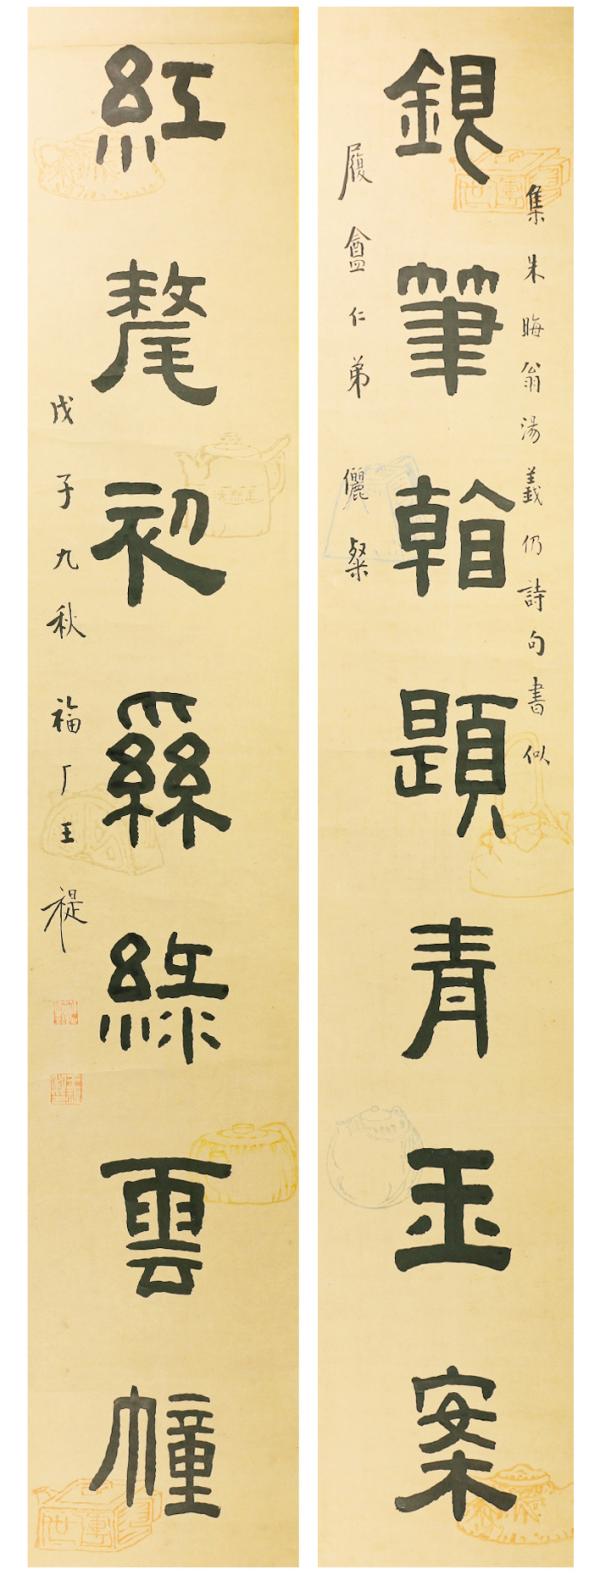 集朱晦翁湯義仍詩句書似
銀筆翰題青玉案
履盦仁弟 儷粲
紅氂初系綠雲幢
戊子九秋 福厂王禔